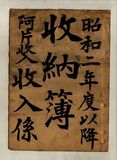 昭和二年度以降
收納簿
阿片收入收入係